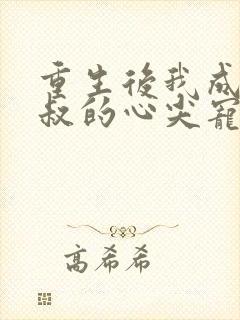 重生後我成
叔的心尖寵
高希希